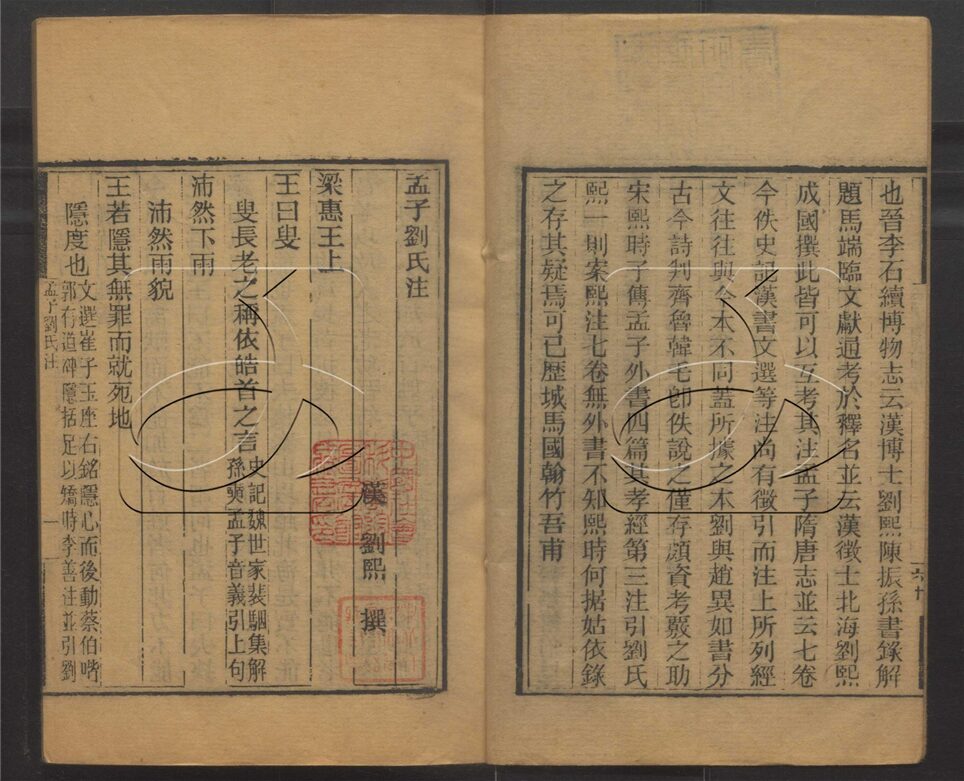 也晉李石續博物志云漢博士劉熙陳振孫書錄解
題馬端臨文獻通考於釋名並云漢徵士北海劉熙
成國撰此皆可以互考其注孟子隋唐志並云七卷
今佚史記漢書文選等注尚有徵引而注上所列經
文往往與今本不同蓋所據之本劉與趙異如書分
古今詩判齊魯韓毛卽佚說之僅存頗資考覈之助
宋熙時子傳孟子外書四篇其孝經第三注引劉氏
熙一則案熙注七卷無外書不知熙時何据姑依錄
之存其疑焉可已歷城馬國翰竹吾甫
孟子劉氏注
漢 劉熙 撰
梁惠王上
王曰叟
叟長老之稱依皓首之言史記魏世家裴駰集解
孫奭孟子音義引上句
沛然下雨
沛然雨貌
王若隱其無罪而就死地
隱度也文選崔子玉座右銘隱心而後動蔡伯喈
郭有道碑隱括足以矯時李善注並引劉
孟子劉氏注
一